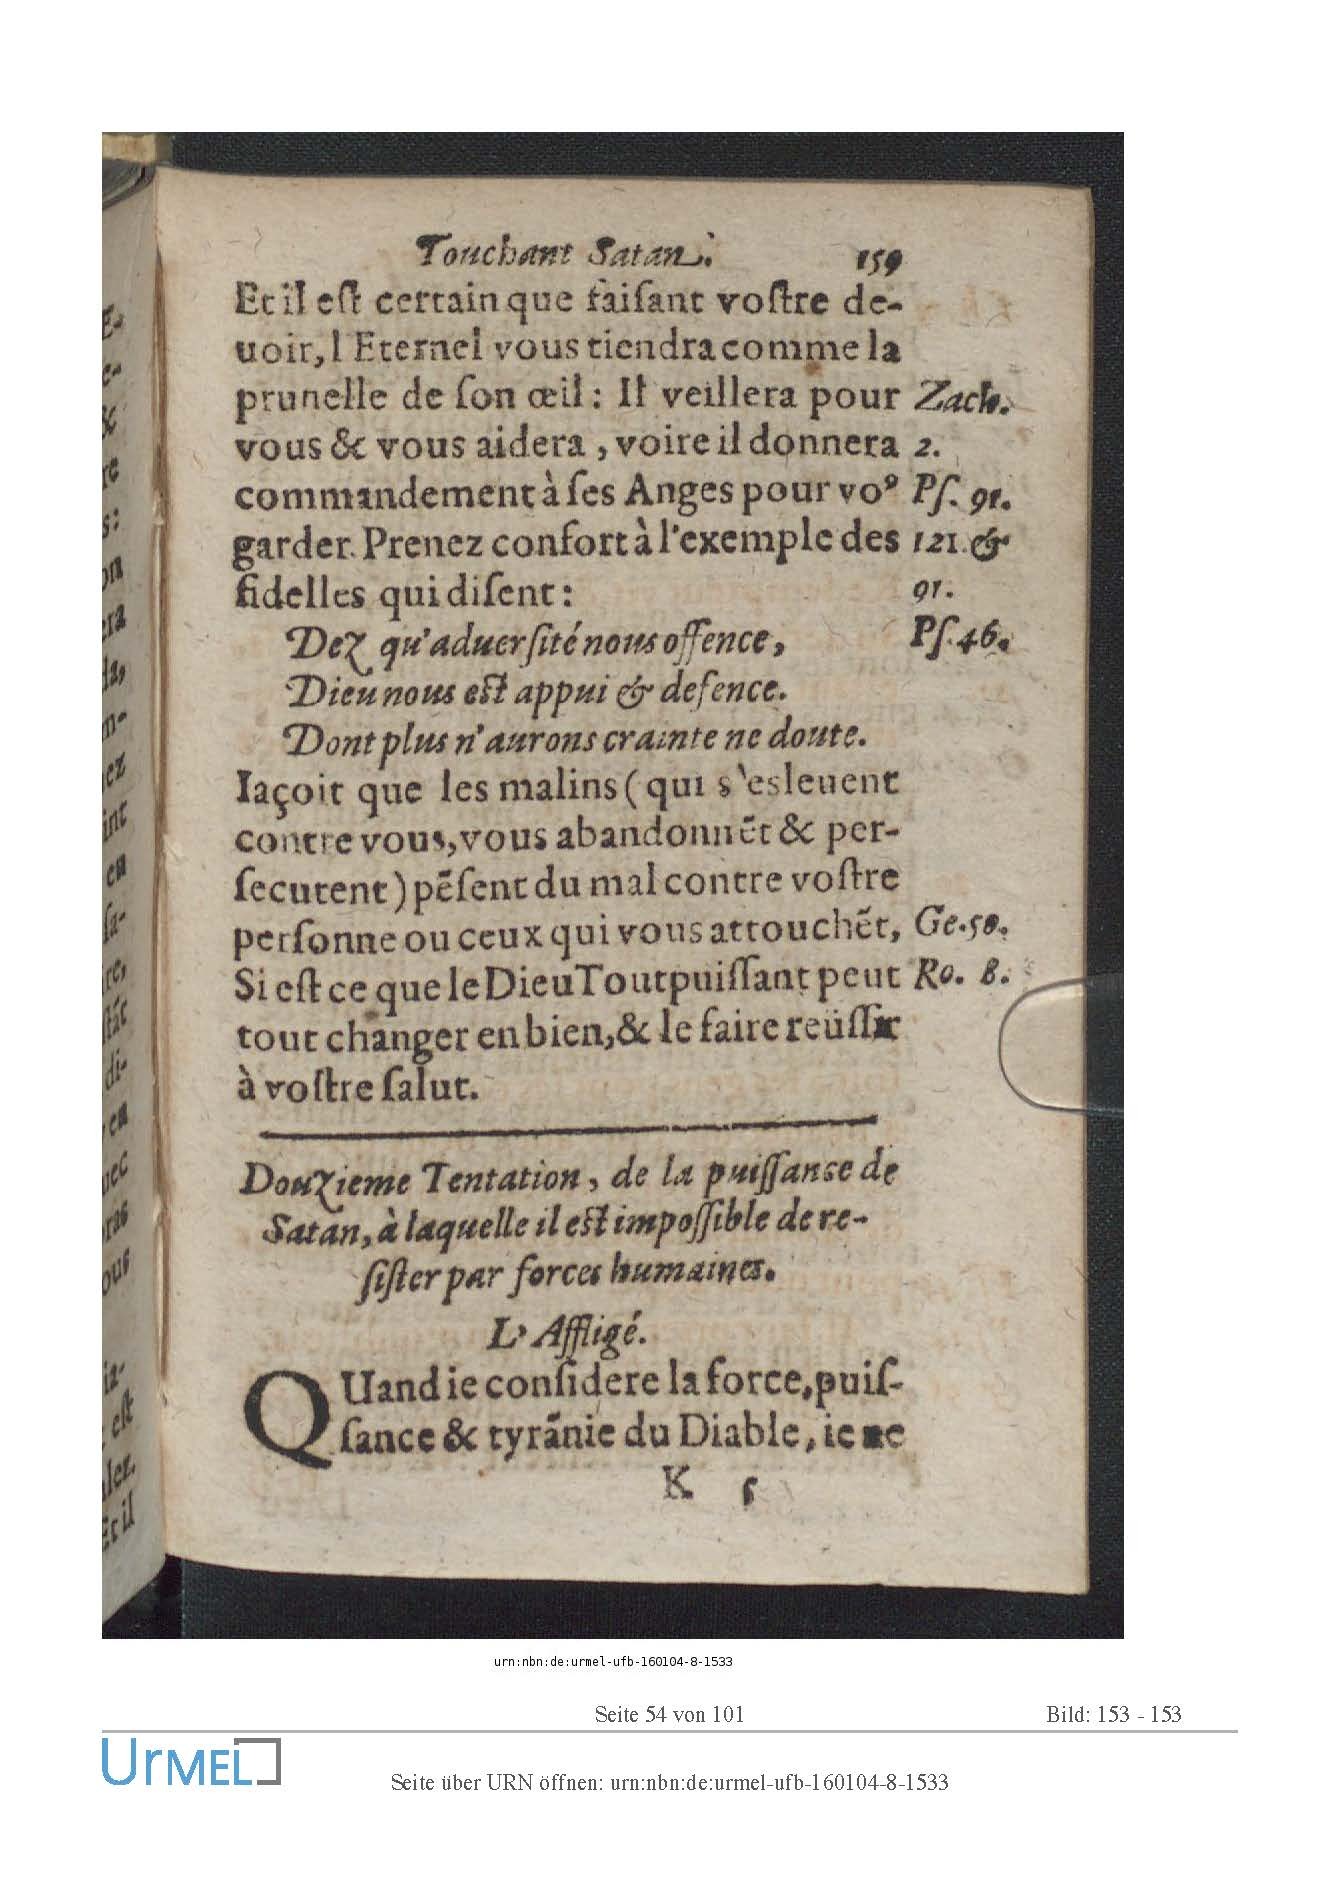 Touchant Satan. 159
Et il est certain que faisant vostre de-
uoir, l'Eternel vous tiendra comme la
prunelle de son œil : Il veillera pour Zach.
vous & vous aidera , voire il donnera 2.
commandement à ses Anges pour voꝰ Ps. 91.
garder. Prenez confort à l'exemple des 121. &
fidelles qui disent : 91.
Dez qu'aduersité nous offence, Ps. 46.
Dieu nous est appui & defence.
Dont plus n'aurons crainte ne doute.
Iaçoit que les malins ( qui s'esleuent
contre vous, vous abandonnẽt & per-
secutent ) pẽsent du mal contre vostre
personne ou ceux qui vous attouchẽt, Ge. 50.
Si est ce que le Dieu Toutpuissant peut Ro. 8.
tout changer en bien, & le faire reüssir
à vostre salut.
Douzieme Tentation , de la puissance de
Satan, à laquelle il est impossible de re-
sister par forces humaines.
L'Affligé.
QUand ie considere la force, puis-
sance & tyrãnie du Diable, ie ne
K 5
E-
e-
&
re
s:
on
ra
la,
n-
ez
int
en
sa-
re,
stãt
di-
en
uec
ras
ous
ia-
est
lez.
Et il
urn:nbn:de:urmel-ufb-160104-8-1533
Seite 54 von 101 Bild: 153 - 153
UrMEL
Seite über URN öffnen: urn:nbn:de:urmel-ufb-160104-8-1533